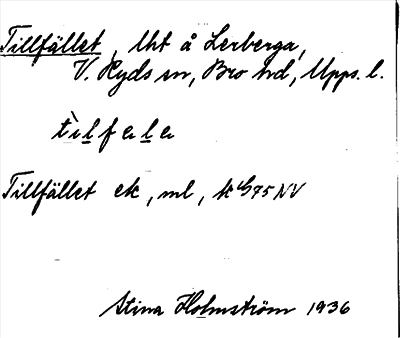 Tillfället, lht å Lerberga,
V. Ryds sn, Bro hd, Upps. l.
tìlfala
Tillfället ek, ml, k 4/75 NV
Stina Holmström 1936